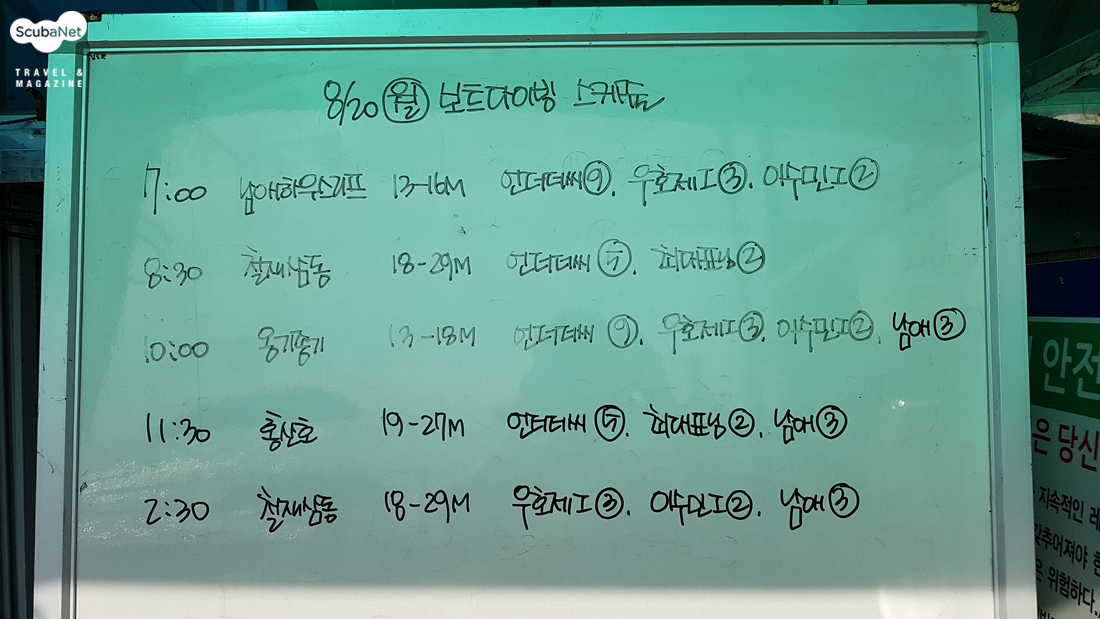 ScubaNet
TRAVEL &
MAGAZINE
8/20 (월) 보트다이빙 스케쥴
7:00 남애하우스리프 13-16M 언더더씨⑨. 우호제I③. 이수민I②
8:30 철재삼동 18-29M 언더더씨⑤. 최대표님②
10:00 옹기종기 13-18M 언더더씨⑨. 우호제I③. 이수민I②. 남애③
11:30 홍산호 19-27M 언더더씨⑤. 최대표님②. 남애③
2:30 철재삼동 18-29M 우호제I③. 이수민I②. 남애③
안전
은 당신
지속적인 레
갖추어져야 한
은 위험하다..